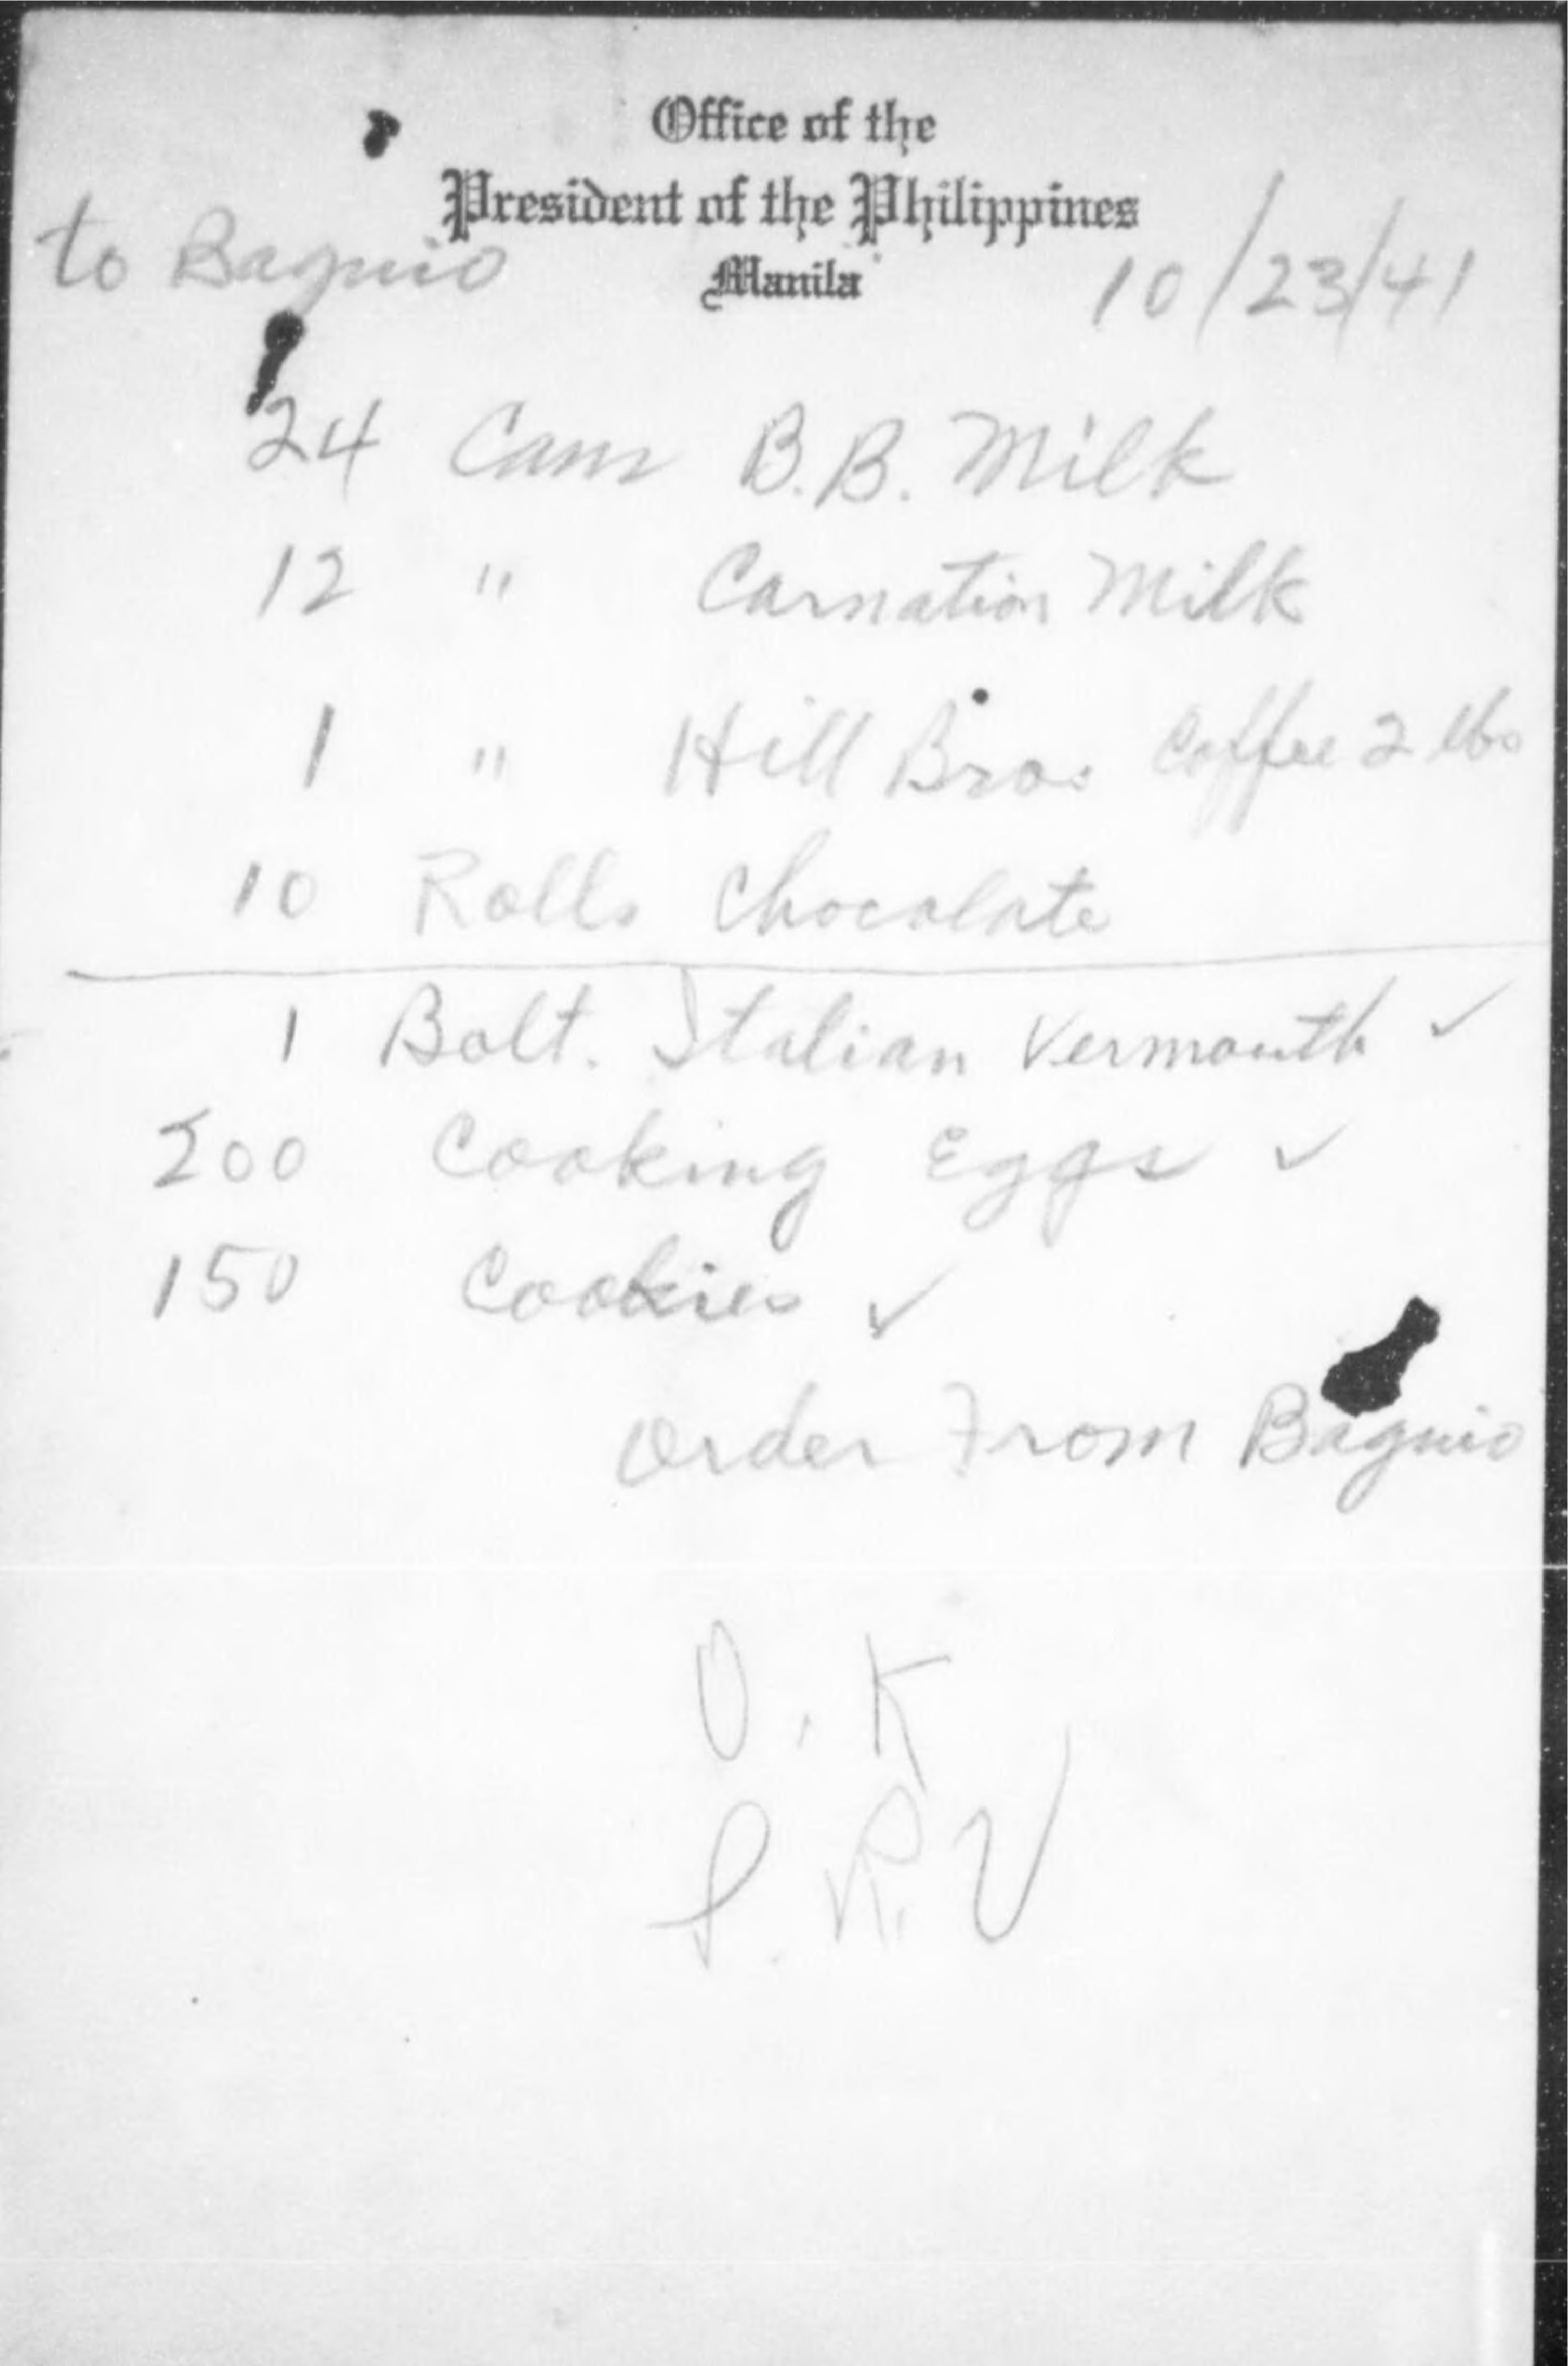 Office of the
President of the Philippines
Manila
to Baguio
10/23/41
24 Cans B.B. Milk
12 " Carnation Milk
1 " Hill Bros Coffee 2 lbs
10 Rolls Chocolate
1 Bolt. Italian Vermouth ✓
200 Cooking Eggs ✓
150 Cookies ✓
Order From Baguio
O.K
S.R.V